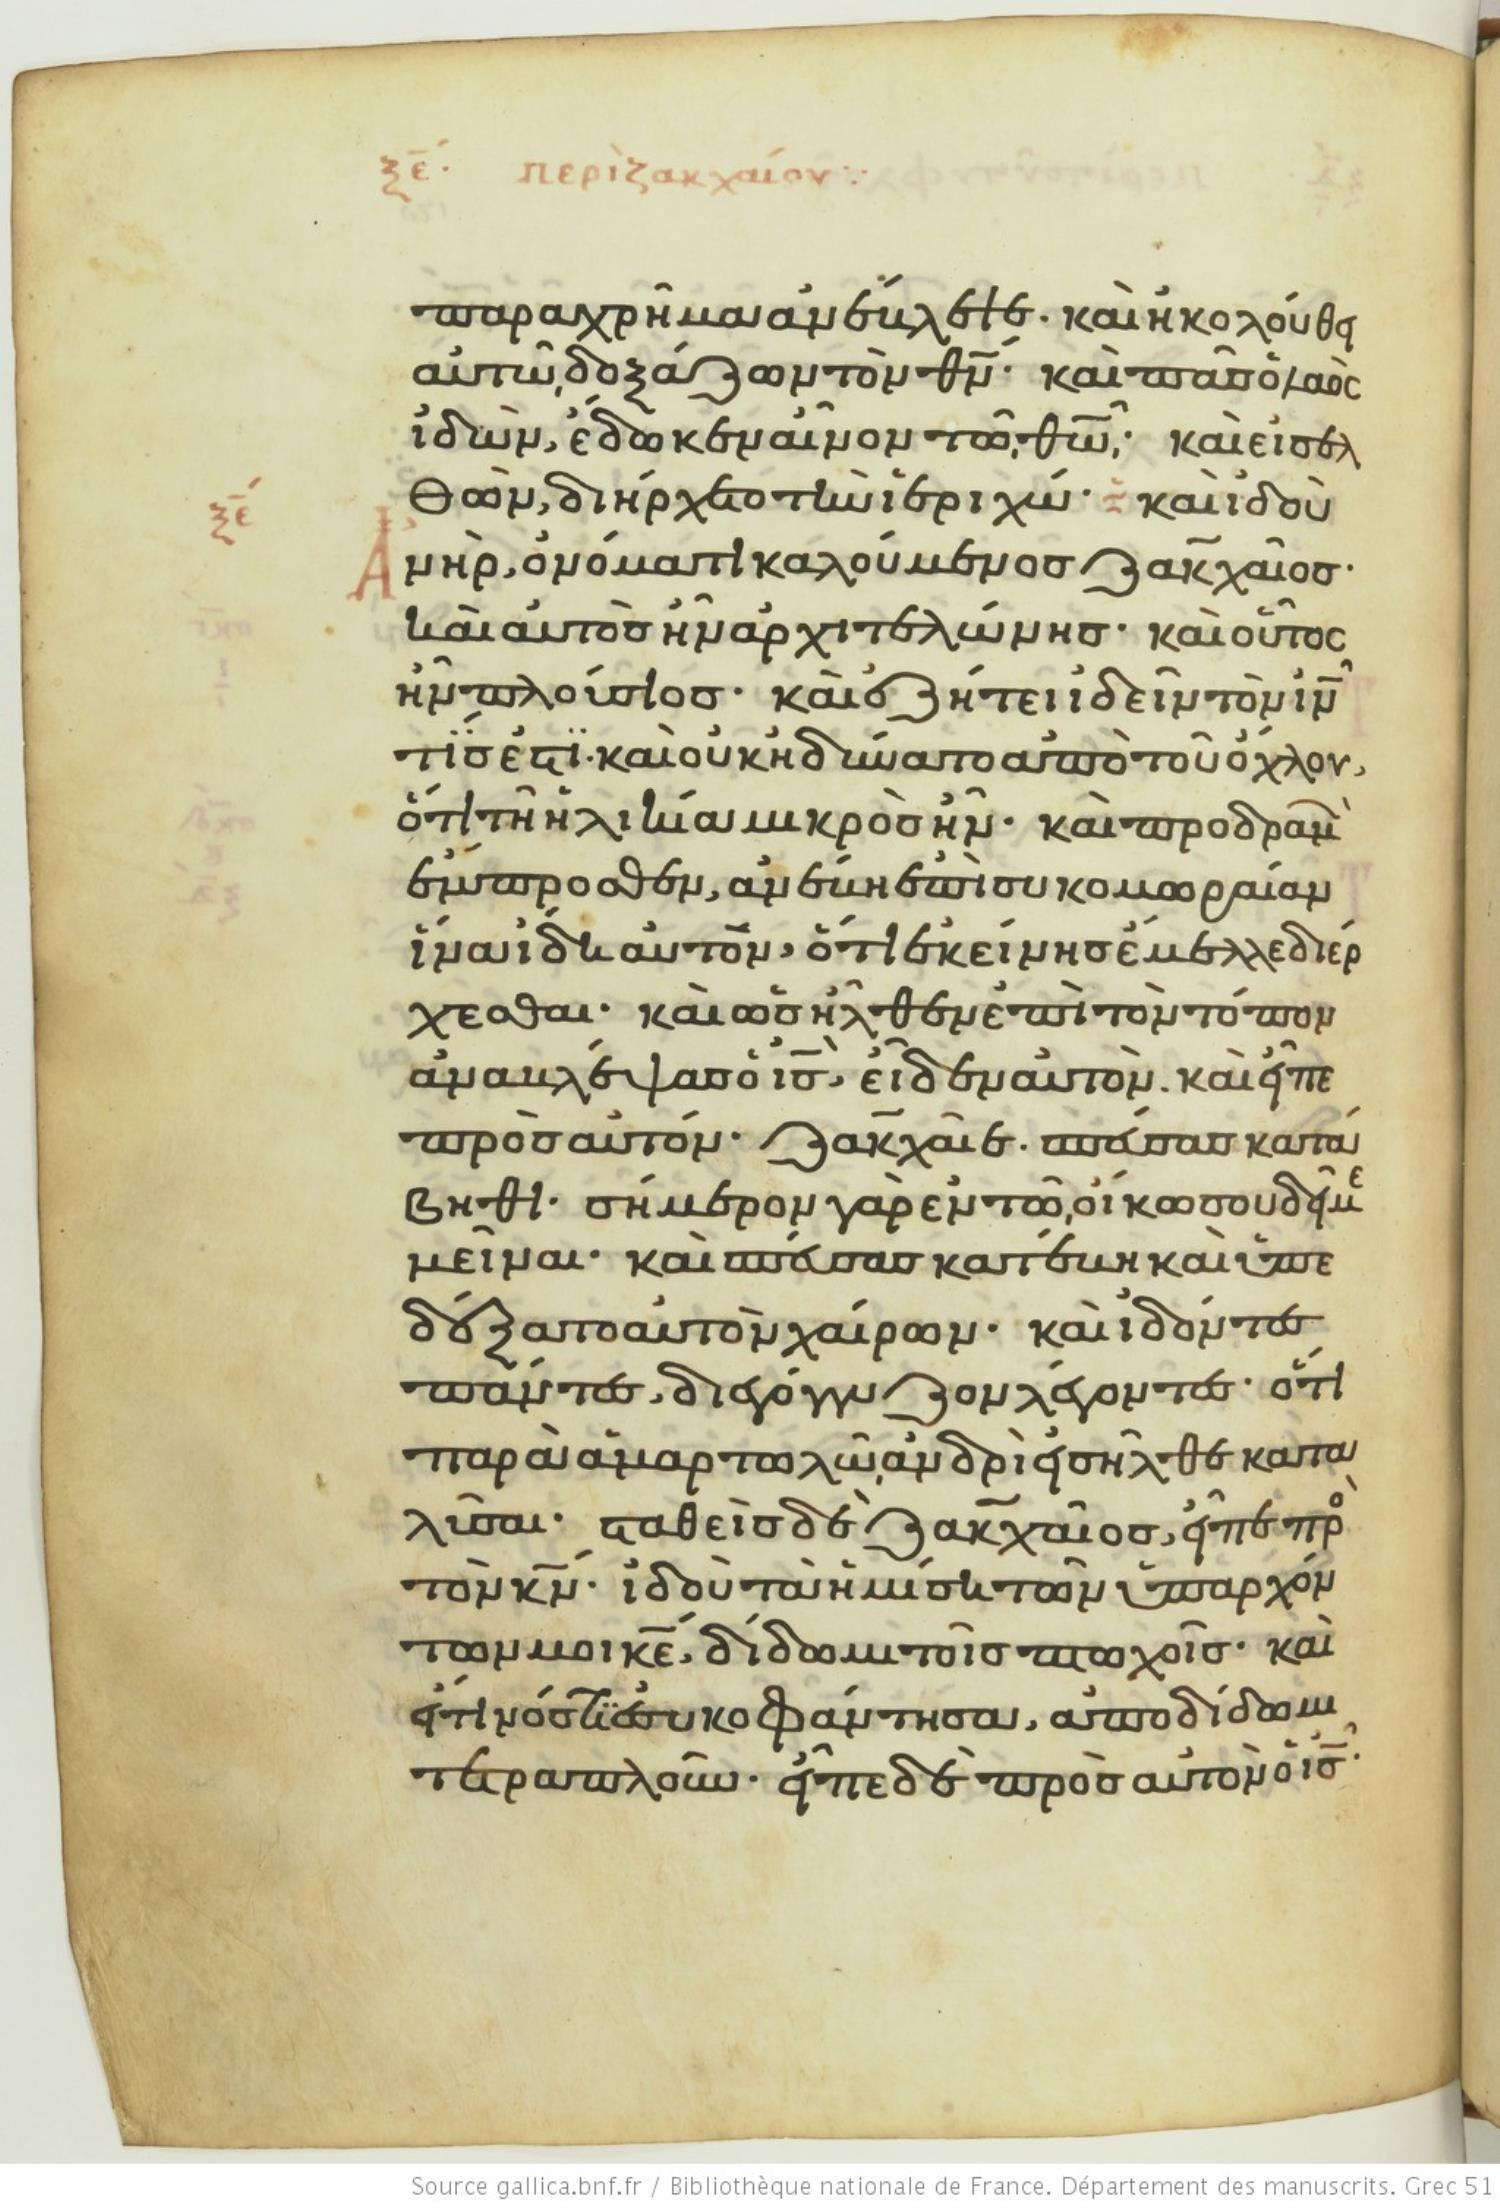 ξε̄· περὶ ζακχαίου:·
παραχρῆμα ἀνέβλεψε· καὶ ἠκολούθει
αὐτῷ, δοξάζων τὸν θν̄· καὶ πᾶσ ὁ λαὸς
ἰδὼν, ἔδωκεν αἶνον τῷ θω̄· καὶ εἰσελ
θὼν, διήρχετο τὴν ἰεριχώ· καὶ ἰδοὺ
ξε̄
Ἀνὴρ, ὀνόματι καλούμενοσ ζακχαῖοσ·
καὶ αὐτὸσ ἦν ἀρχιτελώνησ· καὶ οὗτος
ἦν πλούσιοσ· καὶ ἐζήτει ἰδεῖν τὸν ιν̄
τίσ ἐστι· καὶ οὐκ ἠδύνατο ἀπὸ τοῦ ὄχλου,
ὅτι τῆ ἡλικία μικρὸσ ἦν· καὶ προδραμὼ
ἔμπροσθεν, ἀνέβη ἐπὶ συκομωραίαν
ἵνα ἴδη αὐτὸν, ὅτι ἐκείνησ ἔμελλε διέρ
χεσθαι· καὶ ὡσ ἦλθεν ἐπὶ τὸν τόπον
ἀναβλέψασ ὁ ισ̄, εἶδεν αὐτὸν. καὶ εἶπε
πρὸσ αὐτόν· ζακχαῖε. σπεύσασ κατά
βηθι· σήμερον γὰρ ἐν τῷ οἴκω σου δεῖ με
μεῖναι· καὶ σπεύσασ κατέβη καὶ ὑπε
δέξατο αὐτὸν χαίρων· καὶ ἰδόντεσ
πάντεσ, διεγόγγυζον λέγοντεσ· ὅτι
παρὰ ἁμαρτωλῷ ἀνδρὶ εἰσῆλθε κατα
λῦσαι· σταθεὶσ δὲ ζακχαῖοσ, εἶπε πρὸ
τὸν κν̄· ἰδοὺ τὰ ἡμίση τῶν ὑπαρχόν
των μοι κε̄, δίδωμι τοῖσ πτωχοῖσ· καὶ
εἴ τινόσ τι ἐσυκοφάντησα, ἀποδίδωμι
τετραπλοῦν· εἶπε δὲ πρὸσ αὐτὸν ὁ ισ̄·
Source gallica.bnf.fr / Bibliothèque nationale de France. Département des manuscrits. Grec 51